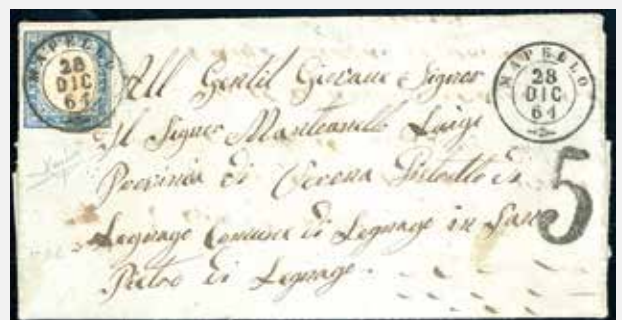 MAPELLO
28
DIC
61
MAPELLO
28
DIC
61
All Gentil Giovane Signor
Il Signor Luigi
Provincia di Verona Distretto di
Legnago Comune di Legnago in San
Pietro di Legnago.
5